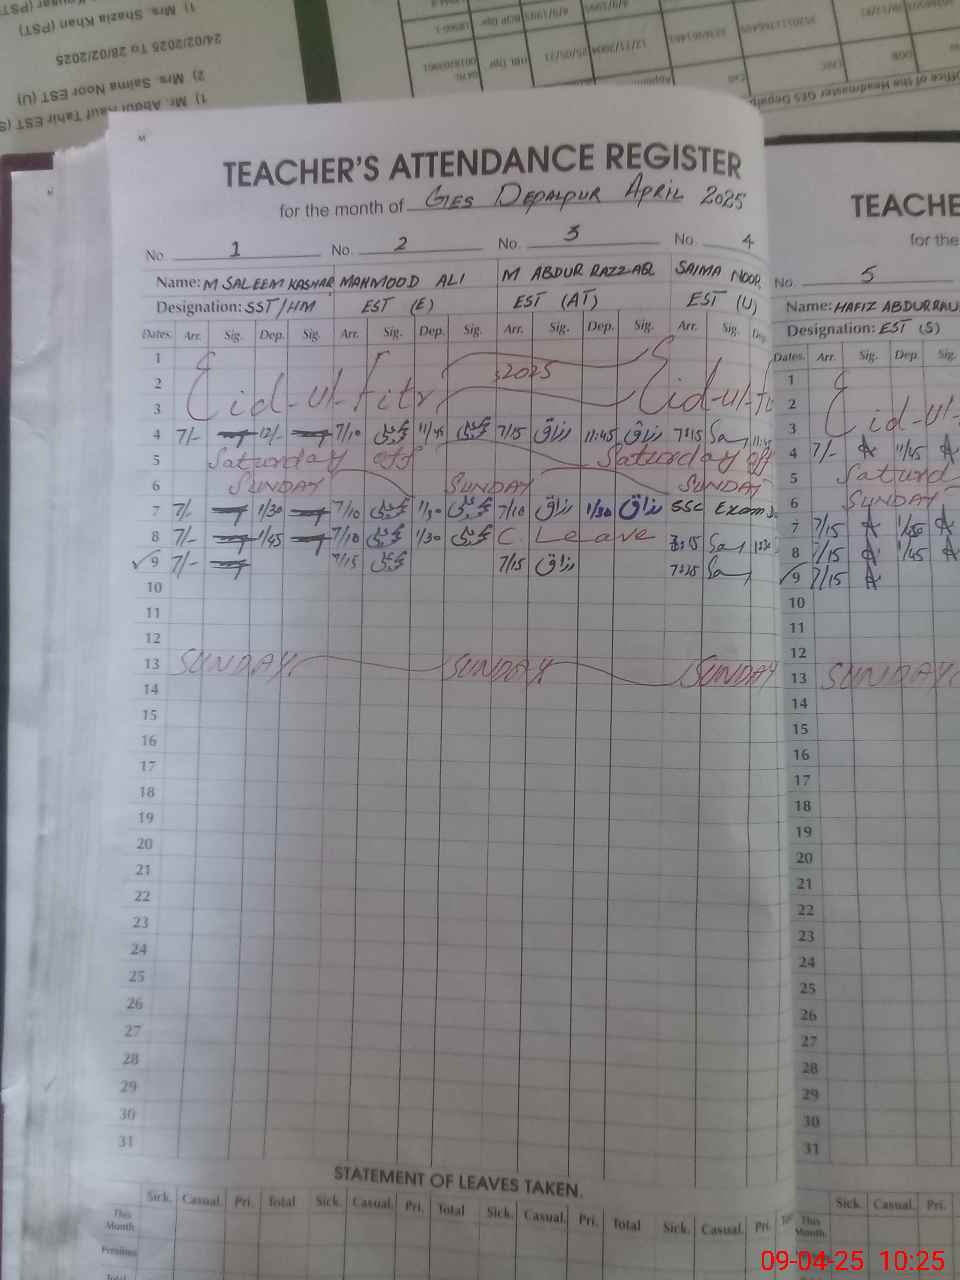 1) Mrs. Shazia Khan (PST)
24/02/2025 To 28/02/2025
2) Mrs. Saima Noor EST (U)
1) Mr. Abdul Rauf Tahir EST (S
Office of the Headmaster GES Depalp
TEACHER'S ATTENDANCE REGISTER
for the month of GES DEPALPUR APRIL 2025
No. 1 No. 2 No. 3 No. 4
Name: M SALEEM KASHAR MAHMOOD ALI M ABDUR RAZZAQ SAIMA NOOR
Designation: SST/HM EST (E) EST (AT) EST (U)
Dates. Arr. Sig. Dep. Sig. Arr. Sig. Dep. Sig. Arr. Sig. Dep. Sig. Arr. Sig. Dep
1
2 Eid-ul-fitr 2025 Eid-ul-fi
3
4 7/- 12/- 7/10 11/45 7/15 رزاق 11:45 رزاق 7:15
5 Saturday off Saturday off
6 SUNDAY SUNDAY SUNDAY
7 7/- 1/30 7/10 1/30 7/10 رزاق 1/30 رزاق SSC Exams
8 7/- 1/45 7/10 1/30 C. Leave
9 7/- 7/15 7/15 رزاق
10
11
12
13 SUNDAY SUNDAY SUNDAY
14
15
16
17
18
19
20
21
22
23
24
25
26
27
28
29
30
31
STATEMENT OF LEAVES TAKEN.
Sick. Casual. Pri. Total Sick. Casual. Pri. Total Sick. Casual. Pri. Total Sick. Casual. Pri.
This Month
Previous
Total
TEACHE
for the
No. 5
Name: HAFIZ ABDURRAU
Designation: EST (S)
Dates. Arr. Sig. Dep. Sig.
1
2 Eid-ul-
3
4 7/- 11/45
5 Saturd
6 SUNDAY
7 7/15 1/30
8 7/15 1/45
9 7/15
10
11
12
13 SUNDAY
14
15
16
17
18
19
20
21
22
23
24
25
26
27
28
29
30
31
Sick. Casual. Pri.
This Month.
09-04-25 10:25